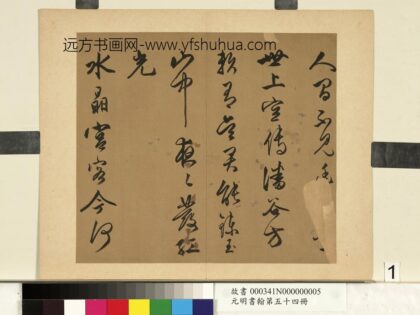 远方书画网-www.yfshuhua.com
人間不見
世上空傳潘谷方
賴有吳昊能鍊玉
山中夜夜發虹
光
水晶宮客今何
故書 000341N000000005
元明書翰第五十四冊
1